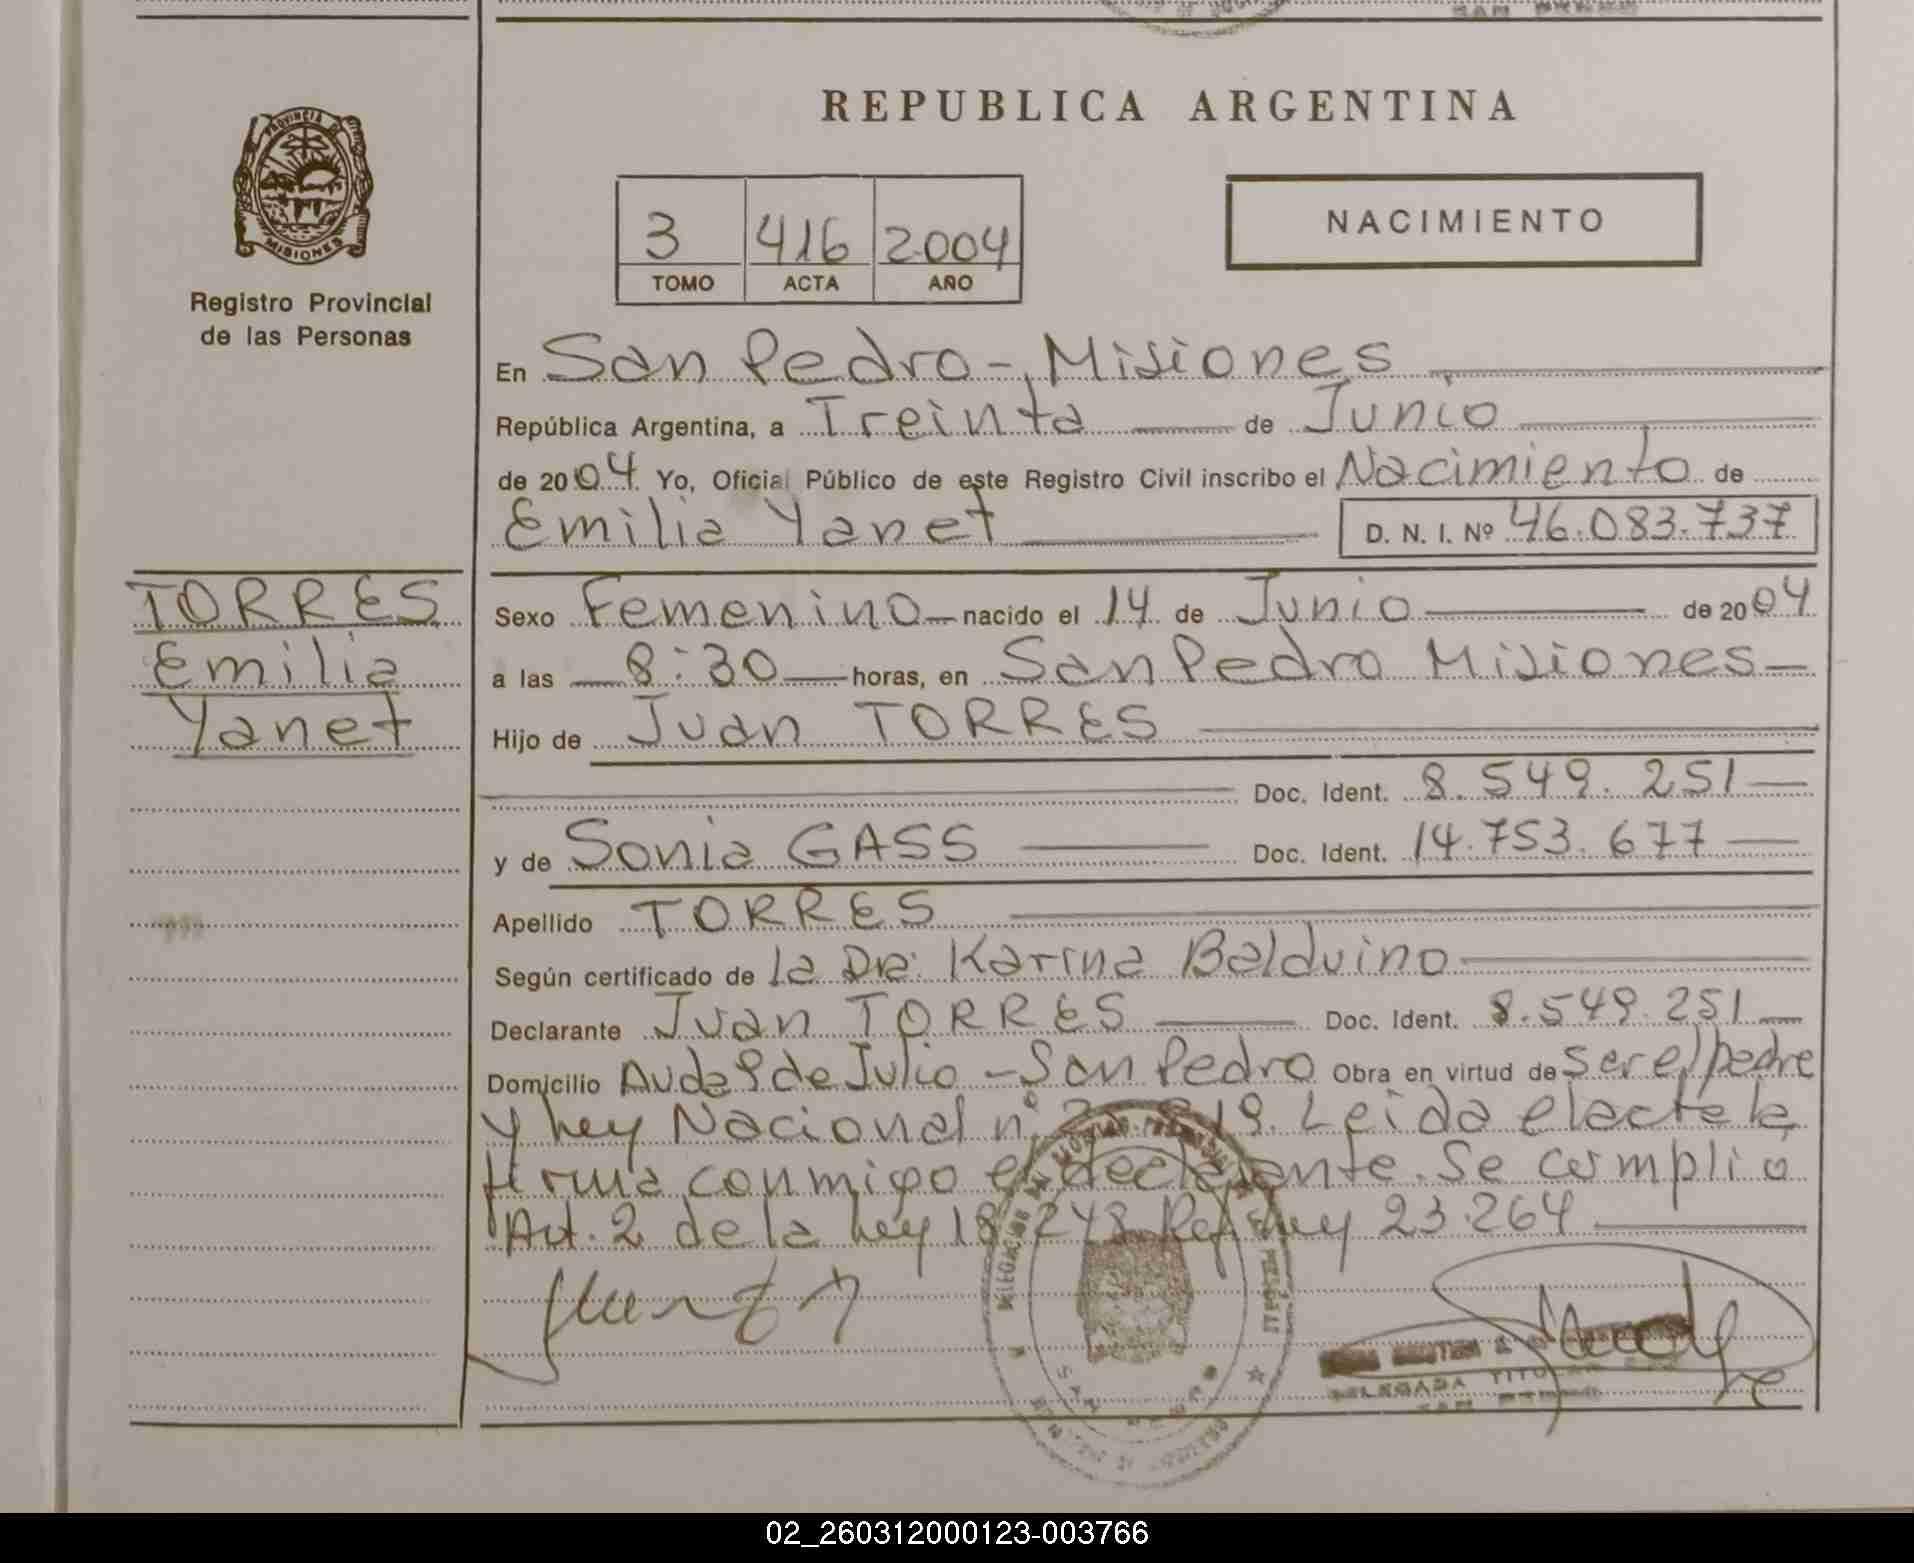 REPUBLICA ARGENTINA
PROVINCIA DE
MISIONES
Registro Provincial
de las Personas
3 416 2004
TOMO ACTA AÑO
NACIMIENTO
En San Pedro - Misiones
República Argentina, a Treinta de Junio
de 2004 Yo, Oficial Público de este Registro Civil inscribo el Nacimiento de
Emilia Yanet D. N. I. Nº 46.083.737
TORRES
Emilia
Yanet
Sexo Femenino nacido el 14 de Junio de 2004
a las 8:30 horas, en San Pedro Misiones
Hijo de Juan TORRES
Doc. Ident. 8.549.251
y de Sonia GASS Doc. Ident. 14.753.677
Apellido TORRES
Según certificado de la Dra. Karina Balduino
Declarante Juan TORRES Doc. Ident. 8.549.251
Domicilio Avda 9 de Julio - San Pedro Obra en virtud de ser el padre
y Ley Nacional nº 19. Leida el acta la
firma conmigo el declarante. Se cumplio
Art. 2 de la Ley 18.248 Ref. Ley 23.264
DELEGADA TITULAR
SAN PEDRO
02_260312000123-003766